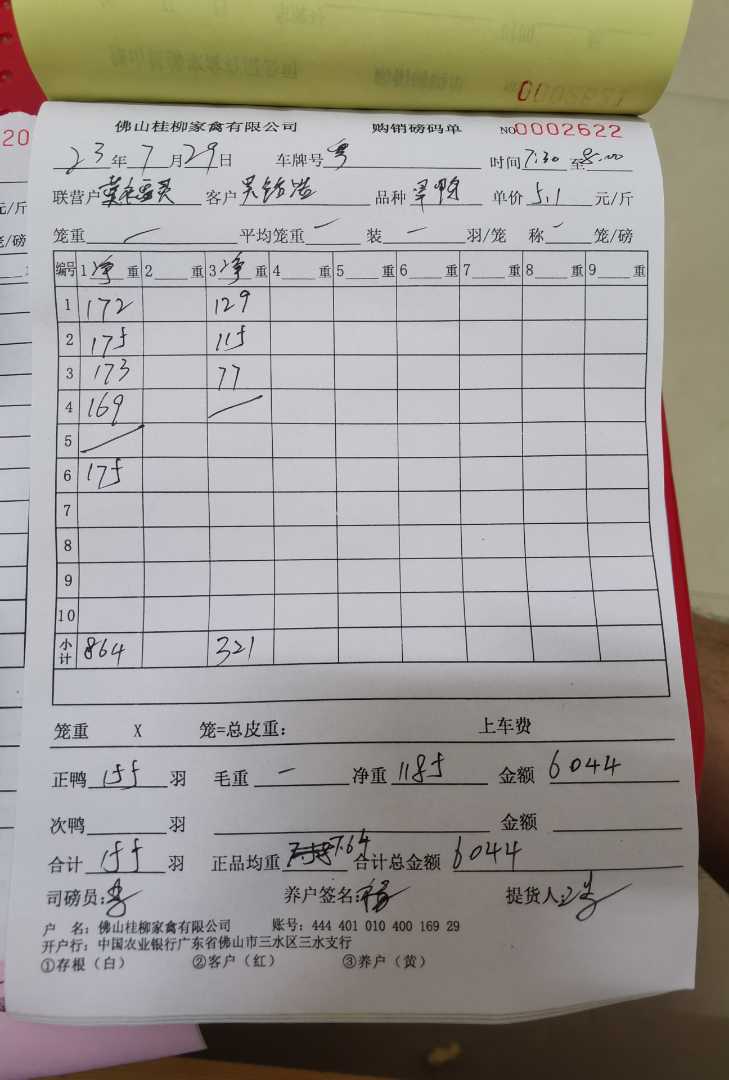 佛山桂柳家禽有限公司 购销磅码单 NO0002622
23年7月29日 车牌号粤 时间7:30至8:00
联营户 客户 品种 单价5.1元/斤
笼重 平均笼重 一 装 一 羽/笼 称 一 笼/磅
编号 1净重 2 重 3净重 4 重 5 重 6 重 7 重 8 重 9 重
1 172 129
2 175 115
3 173 77
4 169
5
6 175
7
8
9
10
小计 864 321
笼重 X 笼=总皮重: 上车费
正鸭155羽 毛重 一 净重1185 金额6044
次鸭 羽 金额
合计155羽 正品均重7.64 合计总金额6044
司磅员: 养户签名: 提货人:
户 名: 佛山桂柳家禽有限公司 账号: 444 401 010 400 169 29
开户行: 中国农业银行广东省佛山市三水区三水支行
①存根(白) ②客户(红) ③养户(黄)
20
元/斤
笼/磅